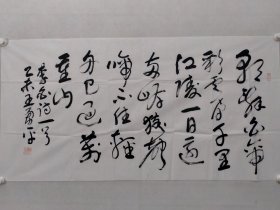 朝辞白帝
彩云间千里
江陵一日还
两岸猿声
啼不住轻
舟已过萬
重山
李白诗一首
乙未